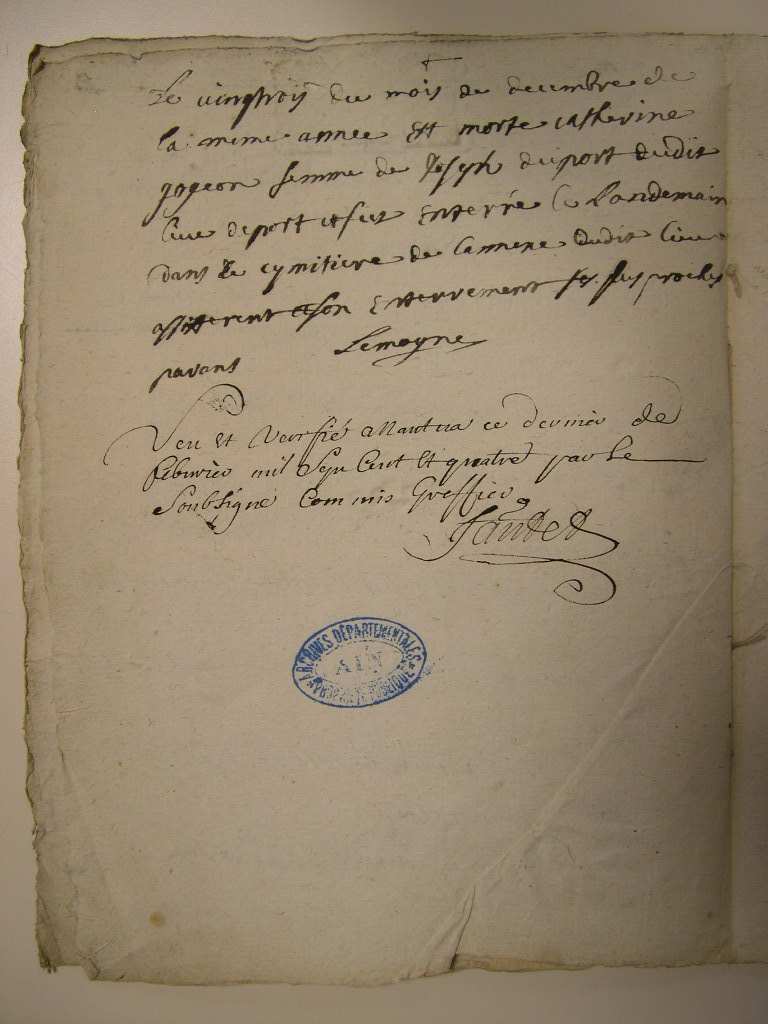 †
Le vingtrois du mois de decembre de
la meme annee est morte catherine
gogeon femme de Joseph duport dudit
lieu deport et fut Enterré le Landemain
dans le cymitiere de dudit lieu
assisterent a son Enterrement ses plus proches
parans Lemoyne
Veu et Verifié a Nantua ce dernier de
febvrier mil Sept Cent Et quatre par le
Soubsigné Commis Greffier
Jantet
ARCHIVES DÉPARTEMENTALES
AIN